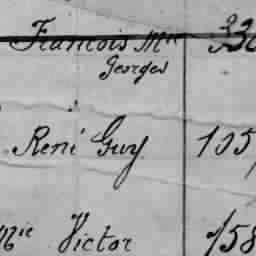 François Mie 330
Georges
René Guy 105
Mie Victor 758